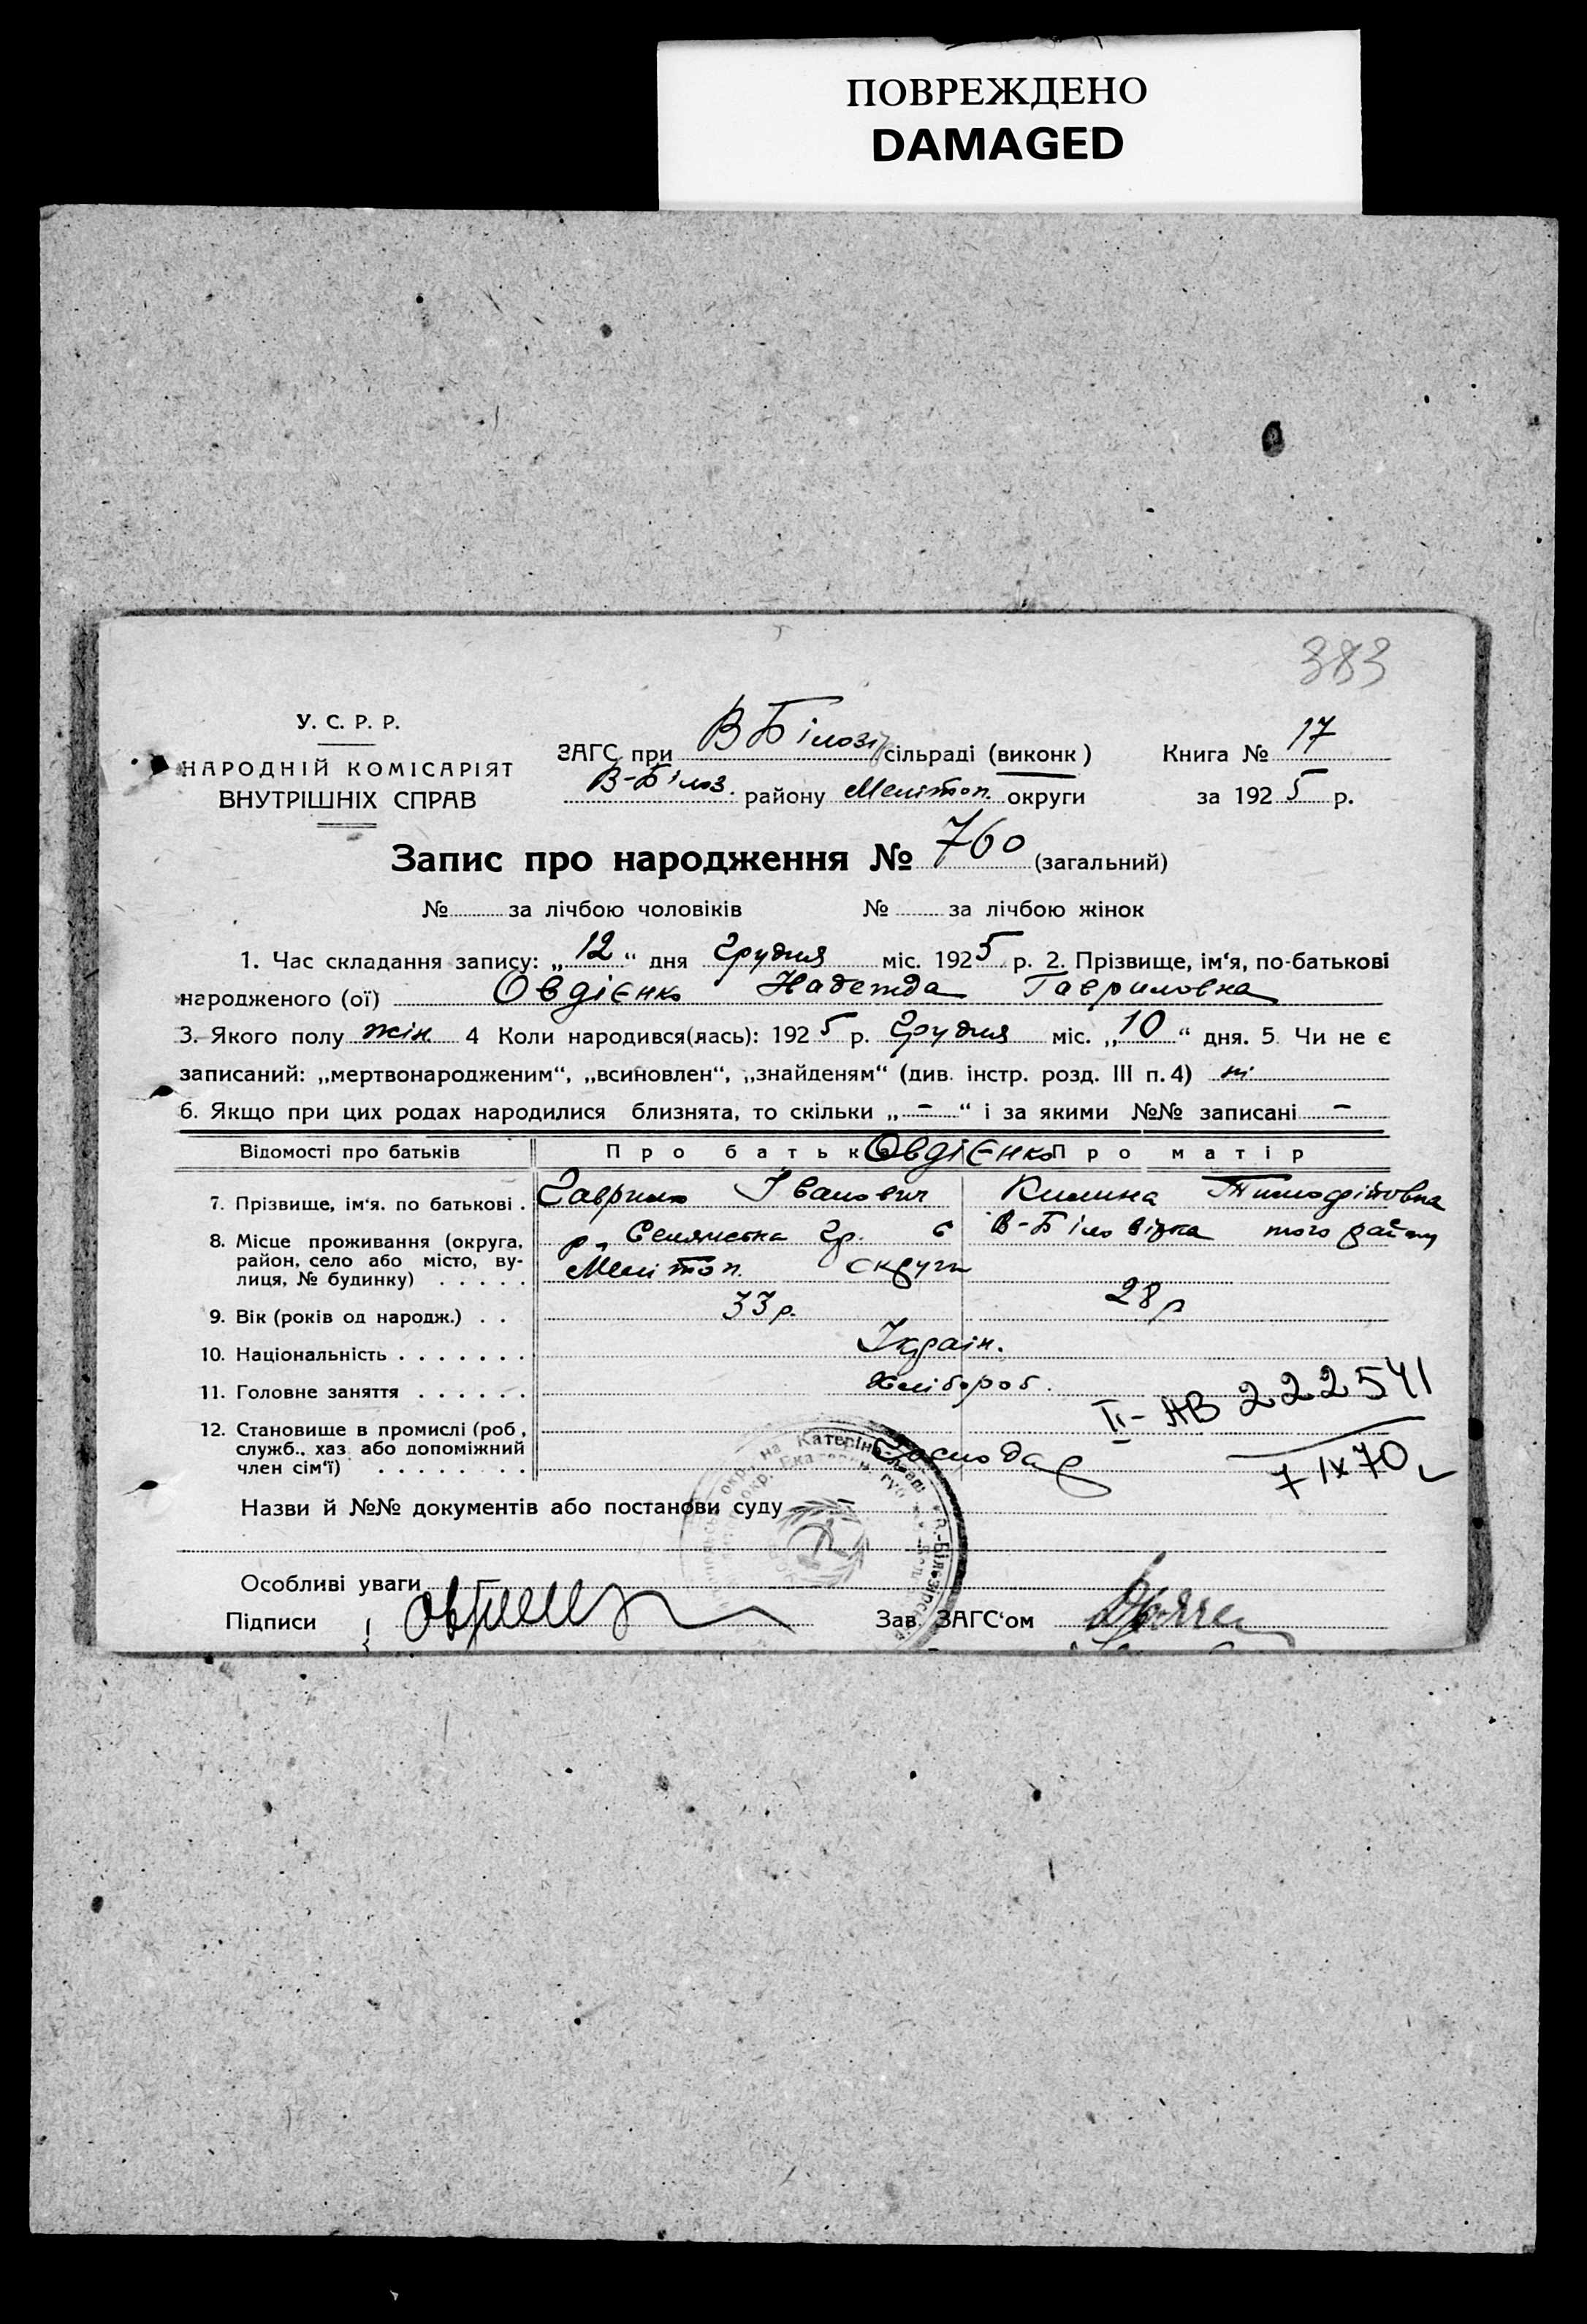 ПОВРЕЖДЕНО
DAMAGED
383
У. С. Р. Р.
НАРОДНІЙ КОМІСАРІЯТ
ВНУТРІШНІХ СПРАВ
ЗАГС при В Білозір сільраді (виконк)
В-Білоз. району Мелітоп. округи
Книга № 17
за 1925 р.
Запис про народження № 760 (загальний)
№ за лічбою чоловіків № за лічбою жінок
1. Час складання запису: „12“ дня Грудня міс. 1925 р. 2. Прізвище, ім‘я, по-батькові
народженого (ої) Овдієнко Надежда Гавриловна
3. Якого полу жін. 4 Коли народився(лась): 1925 р. Грудня міс. „10“ дня. 5. Чи не є
записаний: „мертвонародженим“, „всиновлен“, „знайденям“ (див. інстр. розд. III п. 4) ні
6. Якщо при цих родах народилися близнята, то скільки „-“ і за якими №№ записані -
Відомості про батьків Про батьк Овдієнко Про матір
7. Прізвище, ім‘я. по батькові . Гаврило Іванович Килина Тимофійовна
8. Місце проживання (округа, район, село або місто, вулиця, № будинку) . . . . .
В-Біло
Мелітоп. округи
9. Вік (років од народж.) . . 33 р. 28 р
10. Національність . . . . . . . Україн.
11. Головне заняття . . . . . . Хлібороб.
II-АВ 222541
12. Становище в промислі (роб, служб., хаз. або допоміжний член сім‘ї) . . . . . . . .
Господар
7 IX 70
Назви й №№ документів або постанови суду -
Особливі уваги
Підписи
Зав. ЗАГС‘ом